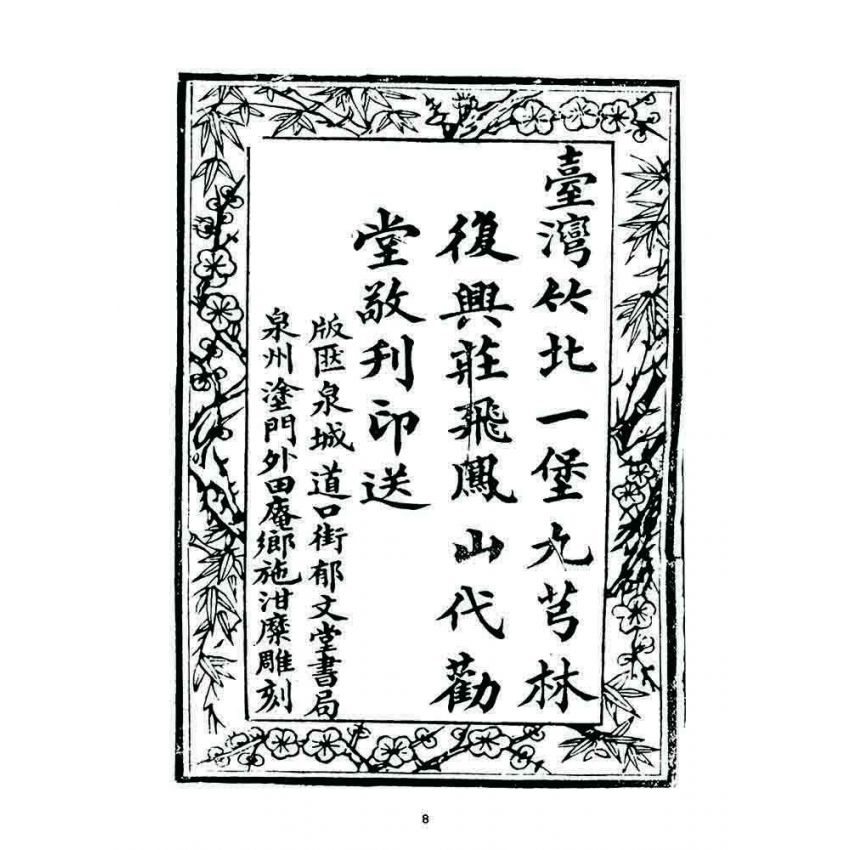 臺灣竹北一堡九芎林
復興莊飛鳳山代勸
堂敬刊印送
版匧泉城道口街郁文堂書局
泉州塗門外田庵鄉施泔糜雕刻
8